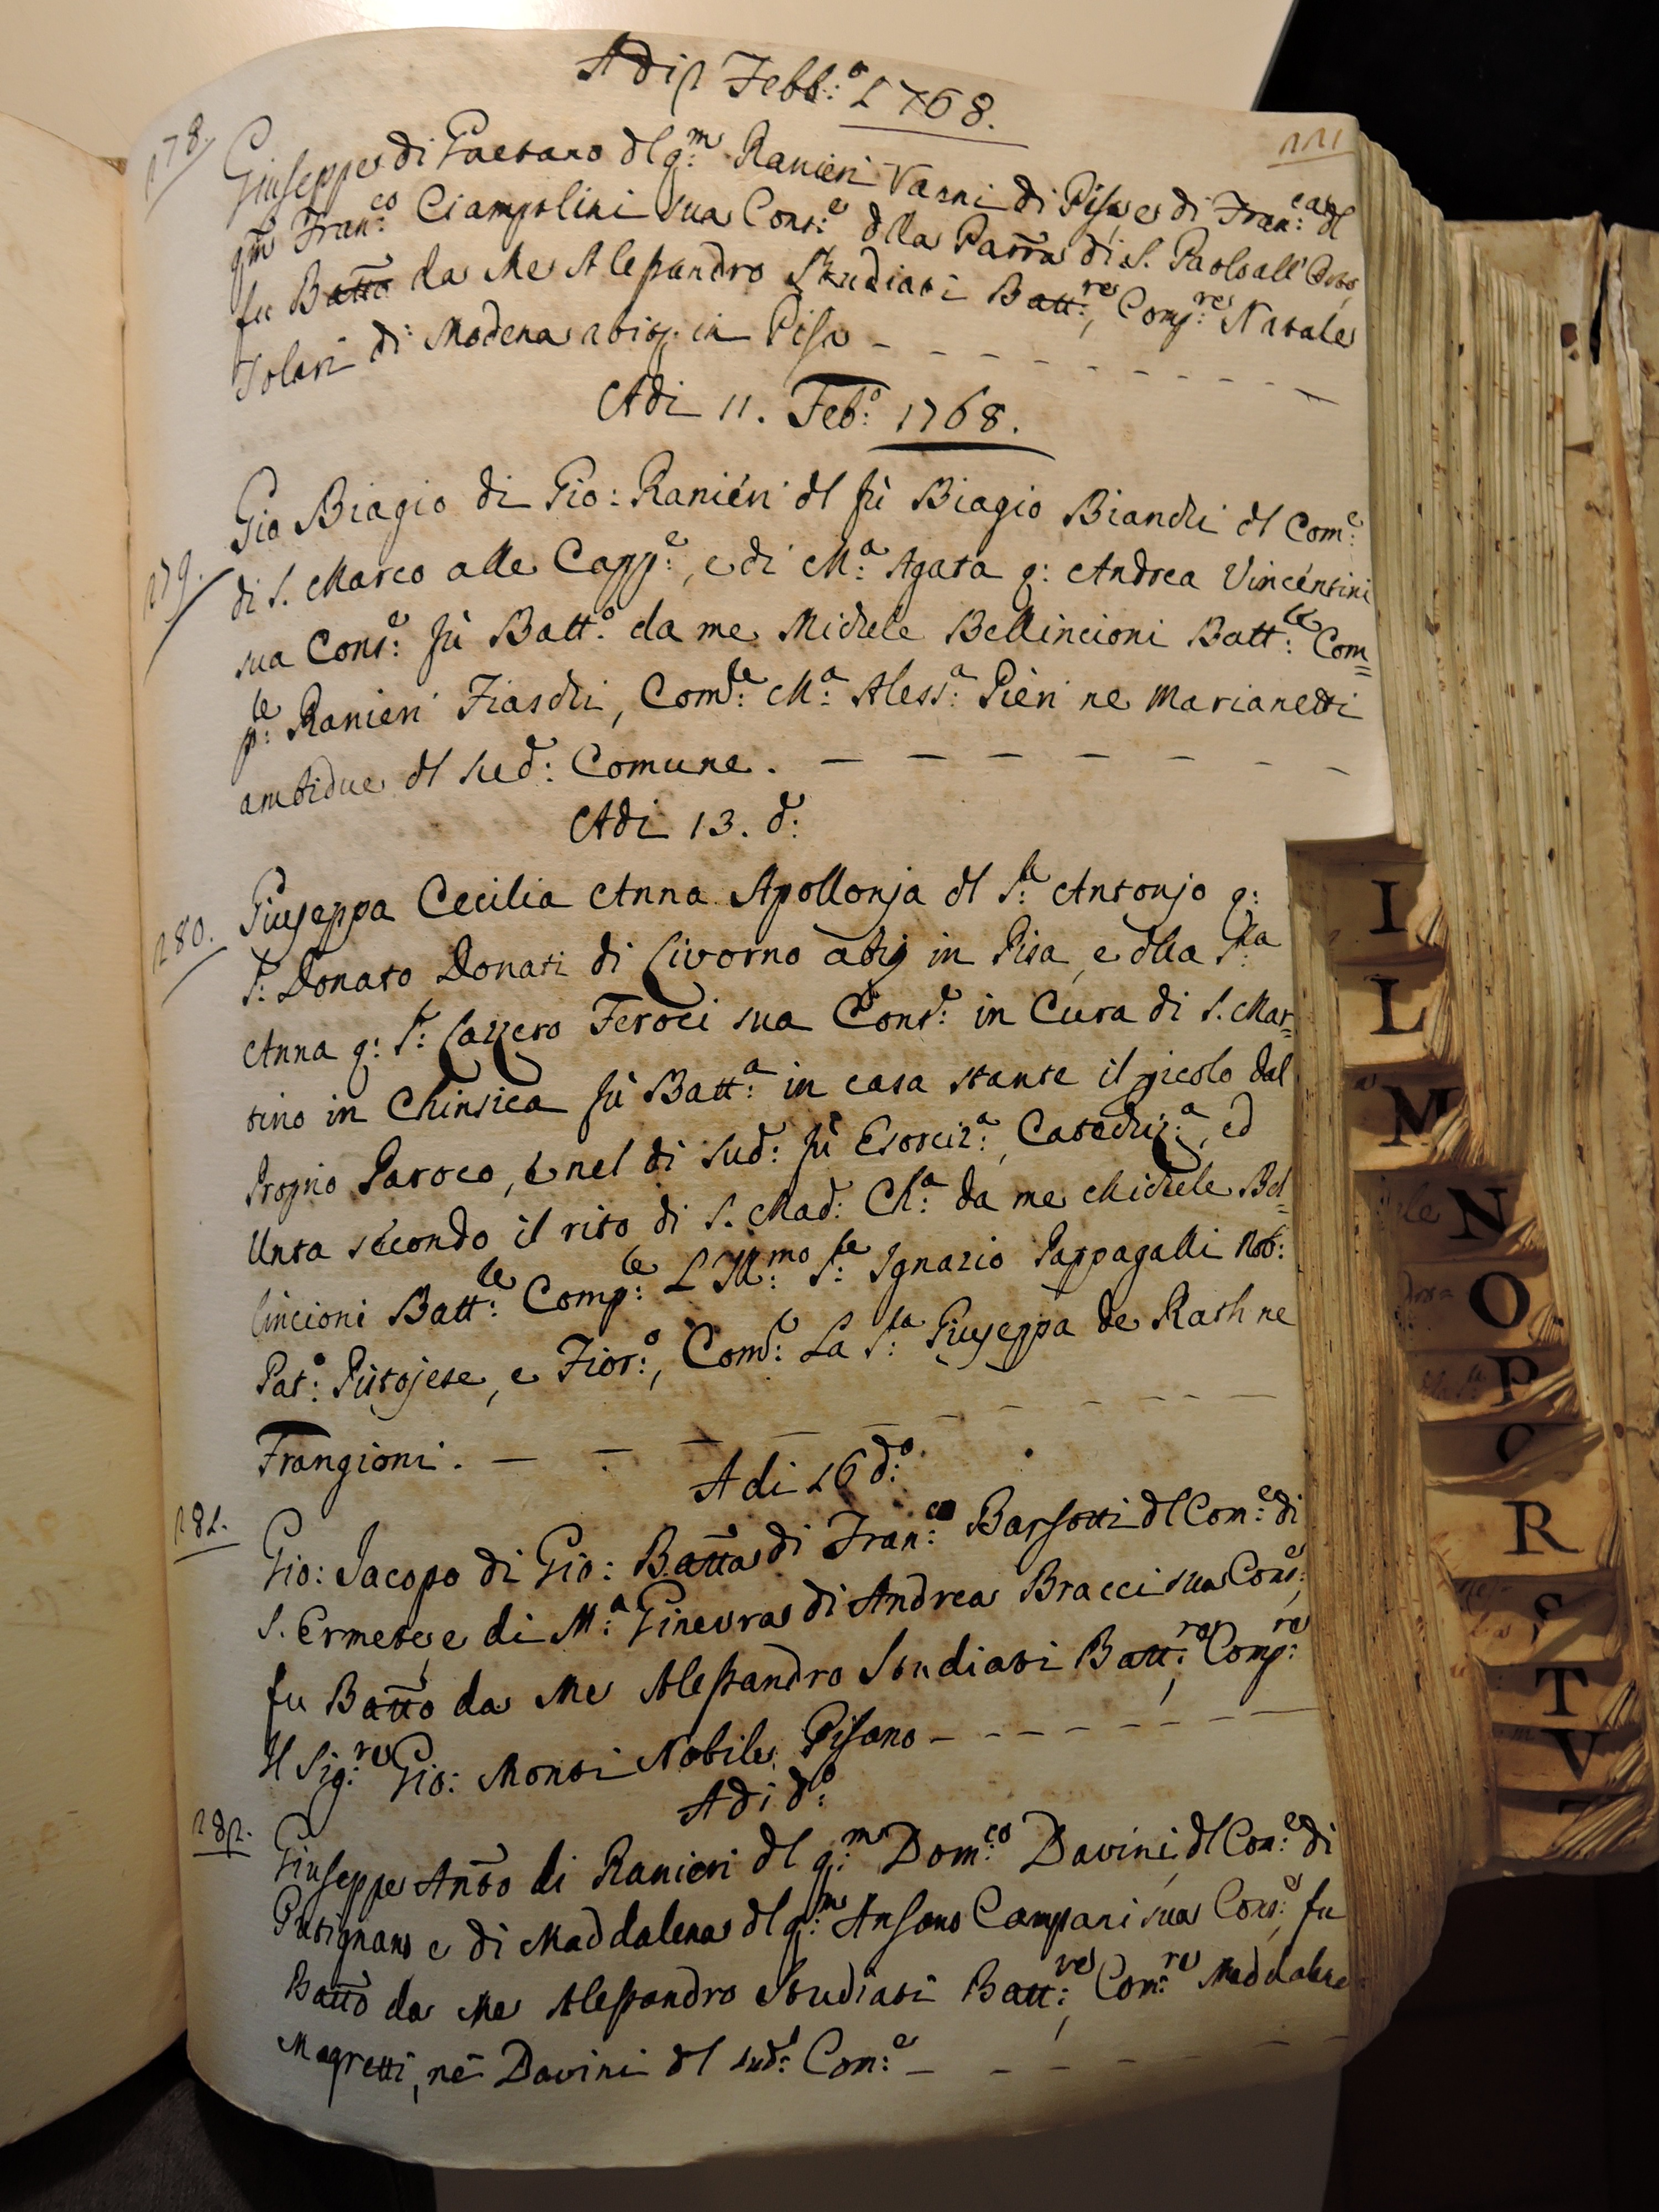 Adi Febb:º 1768.
111
278. Giuseppe di Gaetano dl q:m Ranieri Vanni di Pisa, e di Fran:ca dl
qm Fran:co Ciampolini sua Cons:e dlla Parra di S. Paolo all' Orto,
fu Batto da Me Alessandro Studiati Batt:re, Comp:re Natale
Solari di Modena abit. in Pisa
Adi 11. Feb:º 1768.
279. Gio Biagio di Gio: Ranieri dl fù Biagio Bianchi dl Com:e
di S. Marco alle Capp:e, e di M:a Agata q: Andrea Vincentini
sua Cons:e fù Batt:o da me Michele Bellincioni Batt:le Com=
p:le Ranieri Fiaschi, Com:e M:a Aless:a Pieri ne Marianetti
ambidue dl sud: Comune.
Adi 13. d:
280. Giuseppa Cecilia Anna Apollonja dl S:r Antonjo q:
S: Donato Donati di Livorno abit in Pisa, e dlla S:ra
Anna q: S: Lazzero Feroci sua Cons:e in Cura di S. Mar=
tino in Chinsica fù Batt:a in casa stante il picolo dal
Proprio Paroco, e nel di sud: fù Esorciz:a, Catechiz:a, ed
Unta secondo il rito di S. Mad: Ch:a da me Michele Bel=
lincioni Batt:le Comp:le L'Ill:mo S:re Ignazio Pappagalli Nob:
Pat:o Pistojese, e Fior:o, Com:e La S:ra Giuseppa de Rash ne
Frangioni.
Adi 16 d:º
281. Gio: Jacopo di Gio: Batta di Fran:co Barsotti dl Com:e di
S. Ermete, e di M:a Ginevra di Andrea Bracci sua Cons:e,
fu Batto da Me Alessandro Studiati Batt:re, Comp:re
Il Sig:re Gio: Monti Nobile Pisano
Adi d:º
282. Giuseppe Anto di Ranieri dl q:m Dom:co Davini, dl Com:e di
Putignano e di Maddalena dl q:m Ansano Campani sua Cons:e, fu
Batto da Me Alessandro Studiati Batt:re, Com:re Maddalena
Magretti, ne Davini dl sud: Com:e
I
L
M
N
O
P
R
S
T
V